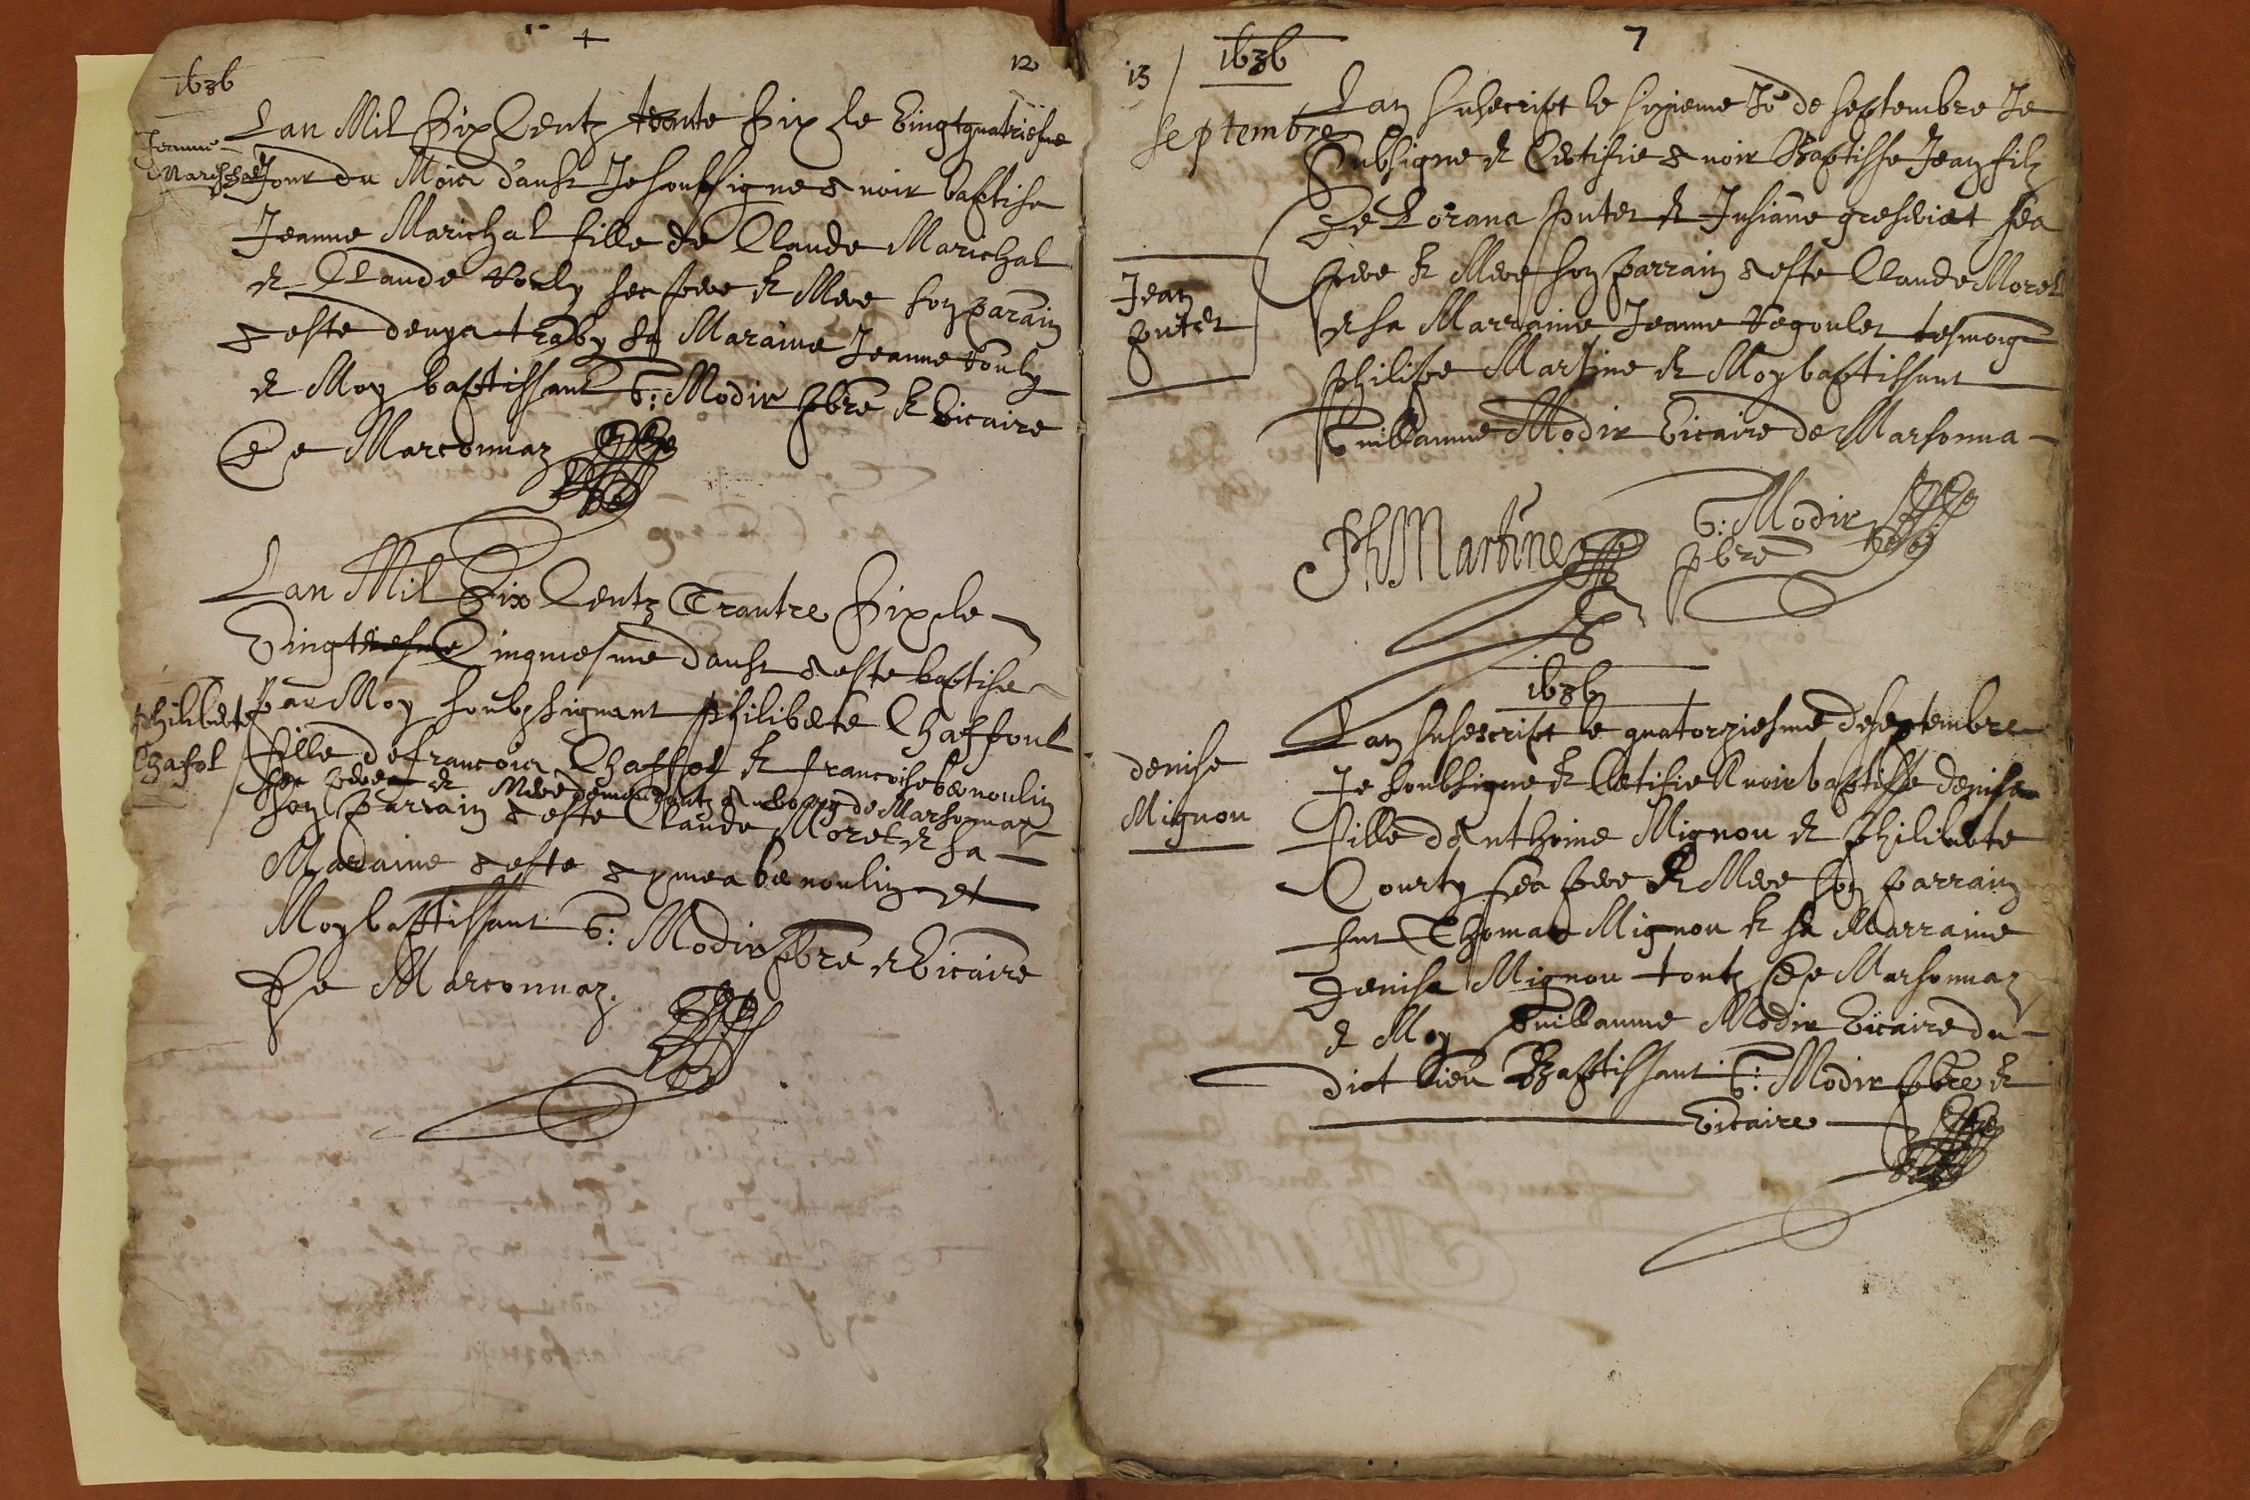 1636
12
Jeanne
Marischal
Lan Mil Six Centz trante Six le Vingtquatriesme
Jour du Mois d'aust Je soubsigne avoir baptise
Jeanne Marichal fille de Claude Marichal
et Claude vouly ses pere et Mere son parain
a este denys traby sa Maraine Jeanne vouly
et Moy baptissant G: Modir pbre et Vicaire
De Marconnaz
Lan Mil Six Centz Trantre Six le
Vingt Cinquiesme daust a este baptise
Philiberte
Chafol
par Moy soubzsignant philiberte Chaffoul
fille de francois Chaffol et francoise
ses peres et Mere demeurantz au bourg de Marsonnaz
son parrain a este Claude Moret et sa
Maraine a este aymea et
Moy baptissant G: Modir pbre et Vicaire
De Marconnaz.
7
13
1636
Septembre
Lan susescript le sixieme Jo de septembre Je
Subsigne et Certifie avoir Baptisse Jean filz
De Lorans putet et Jusiane sea
pere et Mere son parrain a este Claude Moret
Jean
putet
et sa Marraine Jeanne tesmoing
philipe Martine et Moy baptissant
Guillaume Modir Vicaire de Marsonna
Ph Martine
G: Modir
pbre
1636
Lan susescript le quatorziesme de septembre
denise
Mignon
Je soubsigne et Certifie Avoir baptisse denise
fille d'Anthoine Mignon et philiberte
Courty sea pere et Mere son parrain
fut Thomas Mignon et sa Marraine
Denise Mignon toutz De Marsonnaz
et Moy Guillaume Modir Vicaire du
dict lieu Baptissant G: Modir pbre et
Vicaire